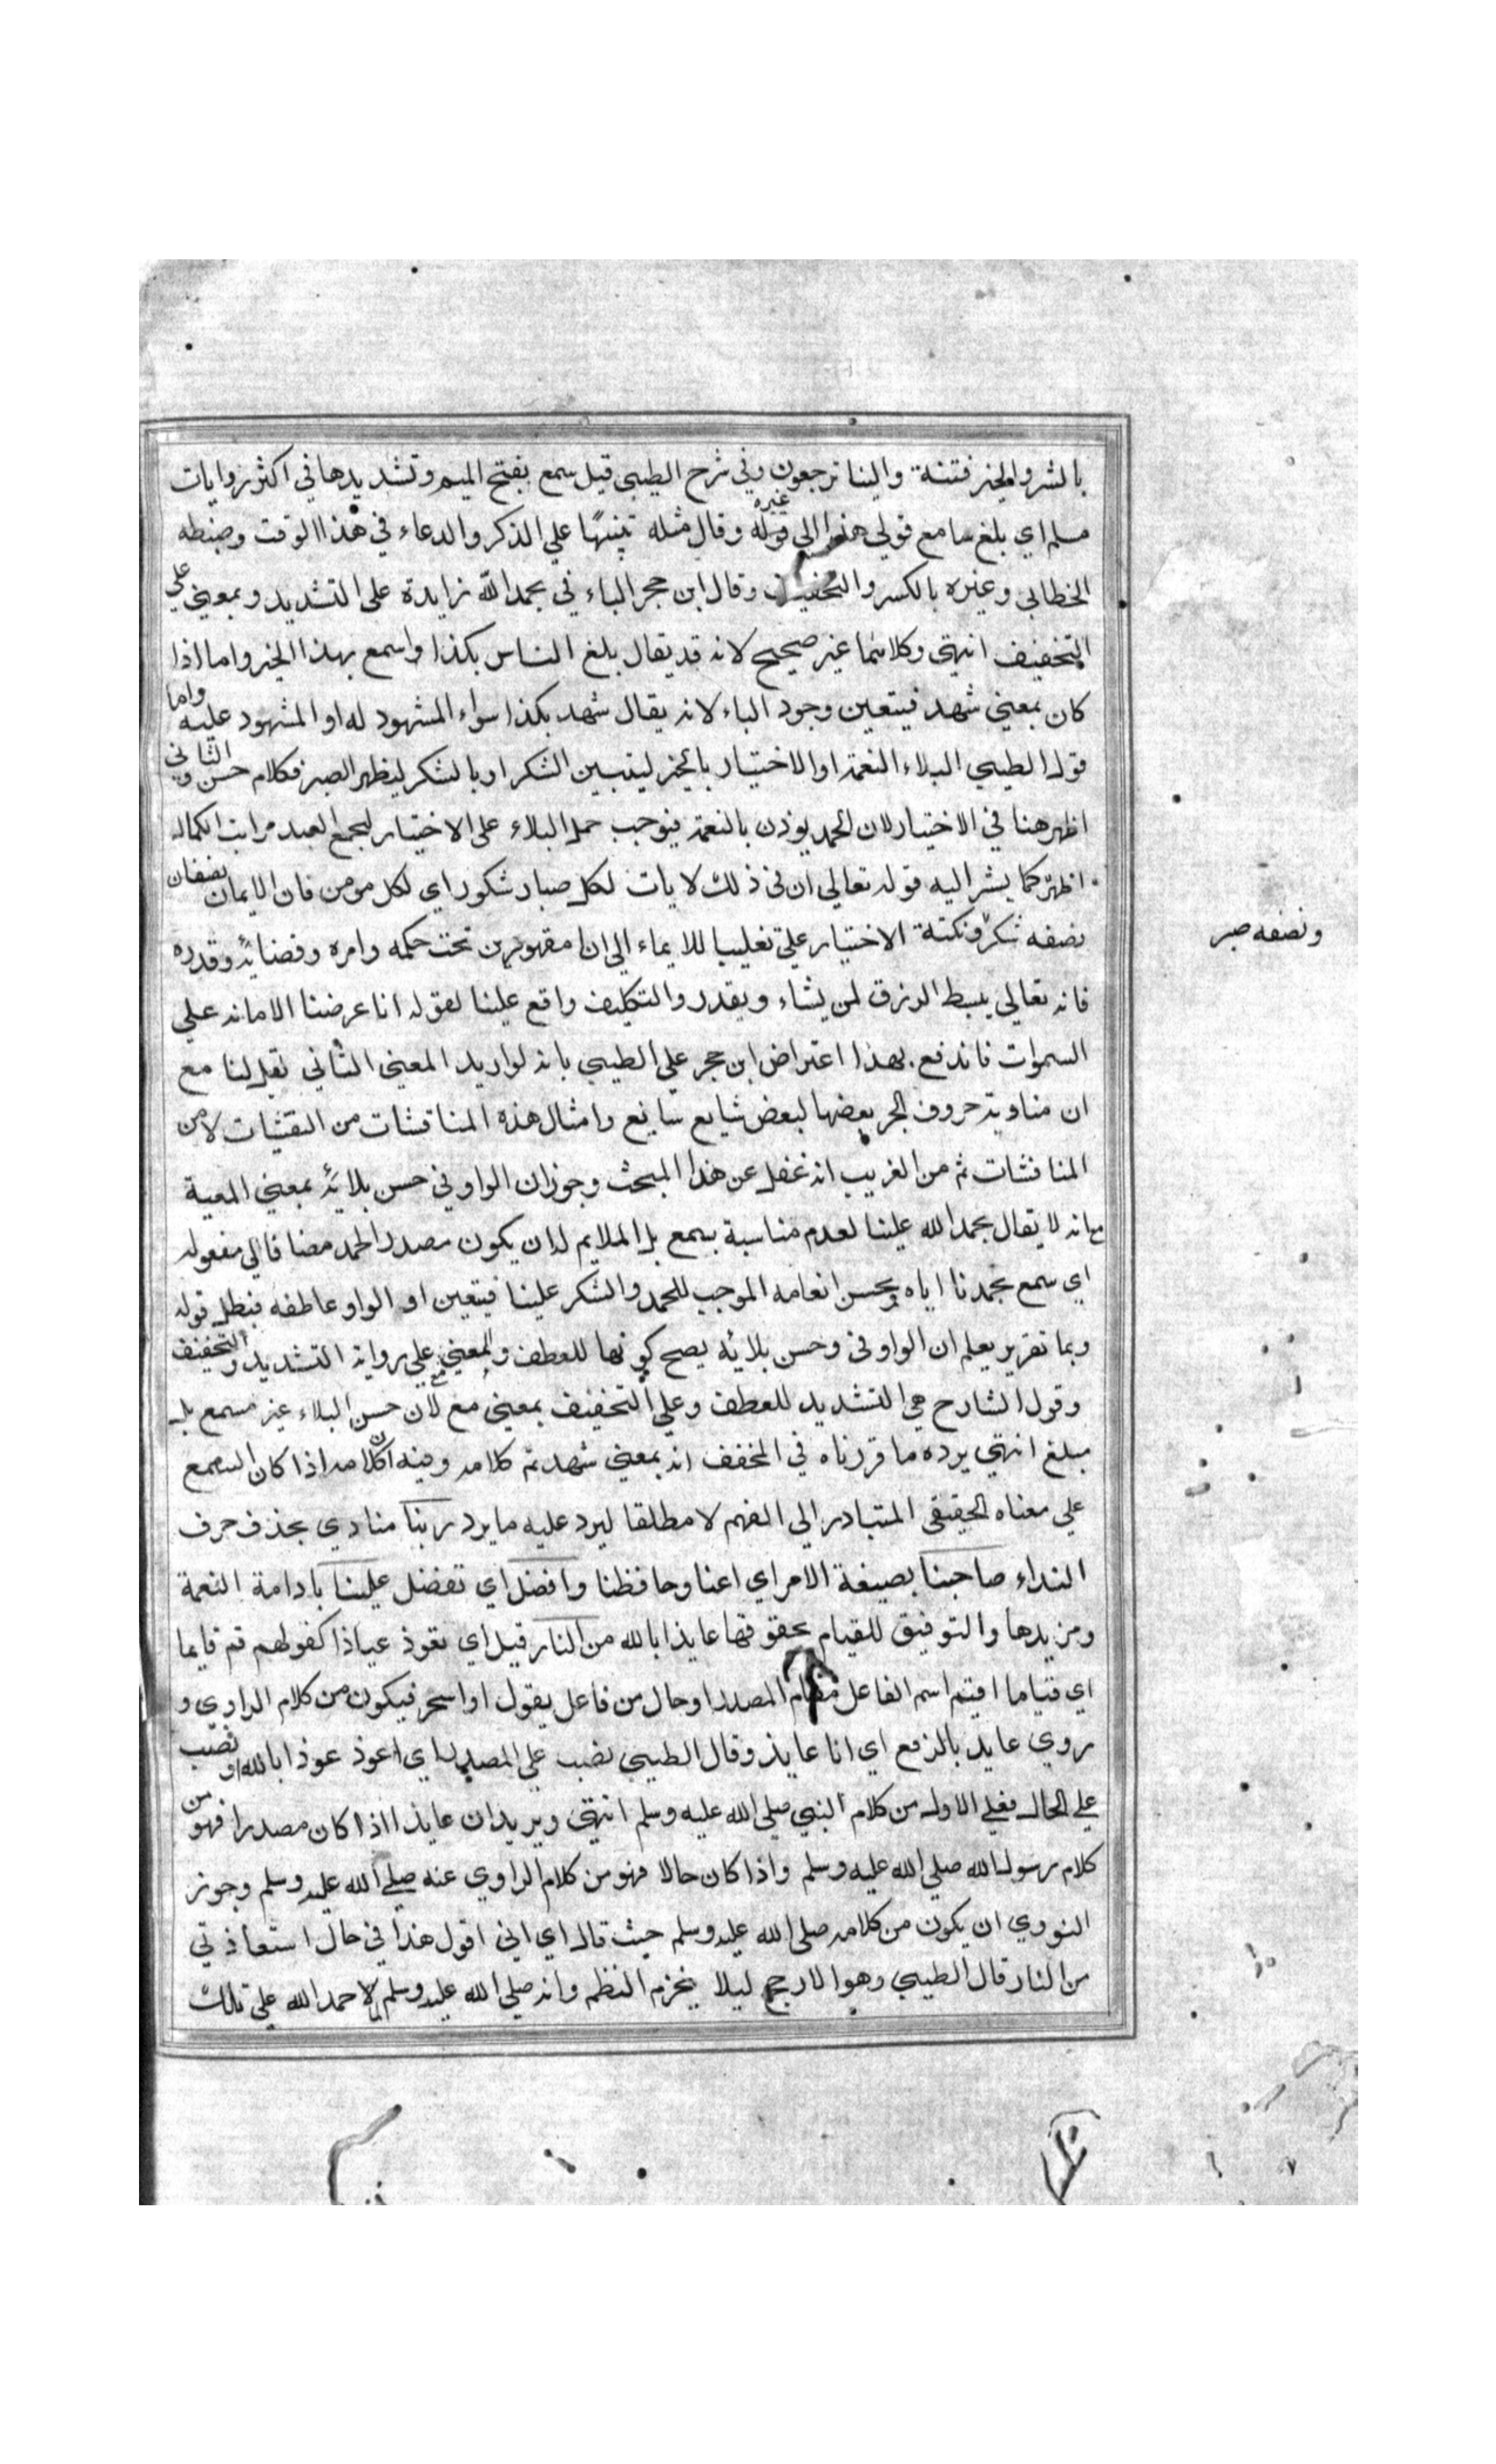 بالشر والخير فتنة والينا ترجعون وفي شرح الطيبي قيل سمع بفتح الميم وتشديدها في اكثر روايات
مسلم اي بلغ سامع قولي هذا الى غيره قوله وقال مثله تنبيها علي الذكر والدعاء في هذا الوقت وضبطه
الخطابي وغيره بالكسر والتخفيف وقال ابن حجر الباء في بحمد الله زايدة على التشديد وبمعني علي
التخفيف انتهى وكلاهما غير صحيح لانه قد يقال بلغ الناس بكذا واسمع بهذا الخبر واما اذا
كان بمعني شهد فيتعين وجود الباء لانه يقال شهد بكذا سواء المشهود له او المشهود عليه واما
قول الطيبي البلاء النعمة او الاختيار بالخير ليتبين الشكر او بالشكر ليظهر الصبر فكلام حسن والثاني
اظهر هنا في الاختيار لان الحمد يوذن بالنعمة فيوجب حمل البلاء على الاختيار ليجمع العبد مراتب الكمال
اظهر كما يشر اليه قوله تعالي ان في ذلك لايات لكل صبار شكور اي لكل مومن فان الايمان نصفان
نصفه شكر ونكتة الاختيار علي تغليبا للايماء الي انا مقهورين تحت حكمه وامره وقضائه وقدره
ونصفه صبر
فانه تعالي يبسط الرزق لمن يشاء ويقدر والتكليف واقع علينا لقوله انا عرضنا الامانه علي
السموات فاندفع بهذا اعتراض ابن حجر علي الطيبي بانه لو اريد المعني الثاني لقيل لنا مع
ان مناوبة حروف الجر بعضها لبعض شايع سايع وامثال هذه المناقشات من النقشات لا من
المنافشات ثم من الغريب انه غفل عن هذا المبحث وجوز ان الواو في حسن بلائه بمعني المعية
مع انه لا يقال بحمد الله علينا لعدم مناسبة بسمع بل الملايم له ان يكون مصدر الحمد مضافا الي مفعوله
اي سمع بحمدنا اياه وبحسن انعامه الموجب للحمد والشكر علينا فيتعين او الواو عاطفه فبطل قوله
وبما تقرير يعلم ان الواو في وحسن بلائه يصح كونها للعطف وبمعني مع علي رواية التشديد والتخفيف
وقول الشارح هي التشديد للعطف وعلي التخفيف بمعني مع لان حسن البلاء غير مسمع بل
مبلغ انتهي يرده ما قررناه في المخفف انه بمعني شهد تم كلامه وفيه ان كلامه اذا كان السمع
علي معناه الحقيقي المتبادر الي الفهم لا مطلقا ليرد عليه ما يرد ربنا منادي بحذف حرف
النداء صاحبنا بصيغة الامر اي اعنا وحافظنا وافضل اي تفضل علينا بادامة النعمة
ومزيدها والتوفيق للقيام بحقوقها عايذا بالله من النار قيل اي نعوذ عياذا كقولهم قم قايما
اي قياما اقيم اسم الفاعل مقام المصدر او حال من فاعل يقول او اسحر فيكون من كلام الراوي و
روي عايذ بالرفع اي انا عايذ وقال الطيبي نصب علي المصدر اي اعوذ عوذا بالله او نصب
علي الحال فعلي الاول من كلام النبي صلى الله عليه وسلم انتهى ويريد ان عايذا اذا كان مصدرا فهو من
كلام رسول الله صلي الله عليه وسلم واذا كان حالا فهو من كلام الراوي عنه صلي الله عليه وسلم وجوز
النووي ان يكون من كلامه صلى الله عليه وسلم حيث قال اي اني اقول هذا في حال استعاذتي
من النار قال الطيبي وهو الارجح ليلا ينخرم النظم وانه صلي الله عليه وسلم لما حمد الله علي تلك